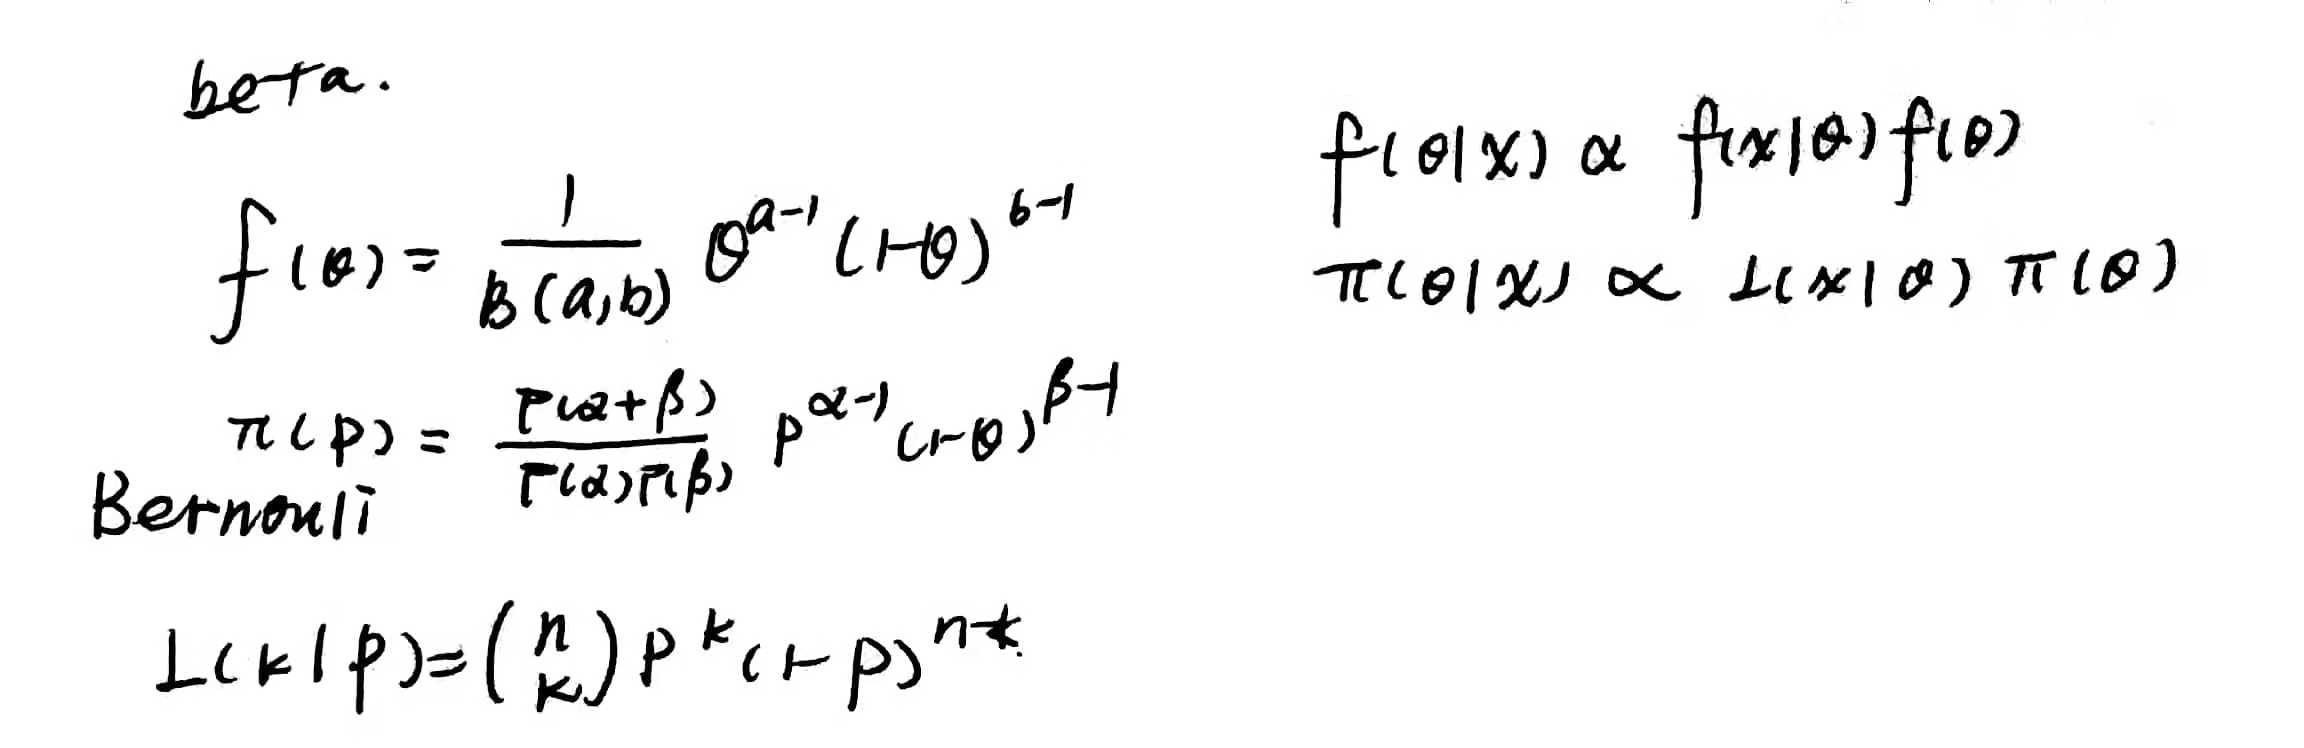 beta.
f(θ) = \frac{1}{B(a,b)} θ^{a-1} (1-θ)^{b-1}
π(p) = \frac{Γ(α+β)}{Γ(α)Γ(β)} p^{α-1} (1-θ)^{β-1}
Bernouli
L(k|p) = \binom{n}{k} p^k (1-p)^{n-k}
f(θ|x) ∝ f(x|θ) f(θ)
π(θ|x) ∝ L(x|θ) π(θ)